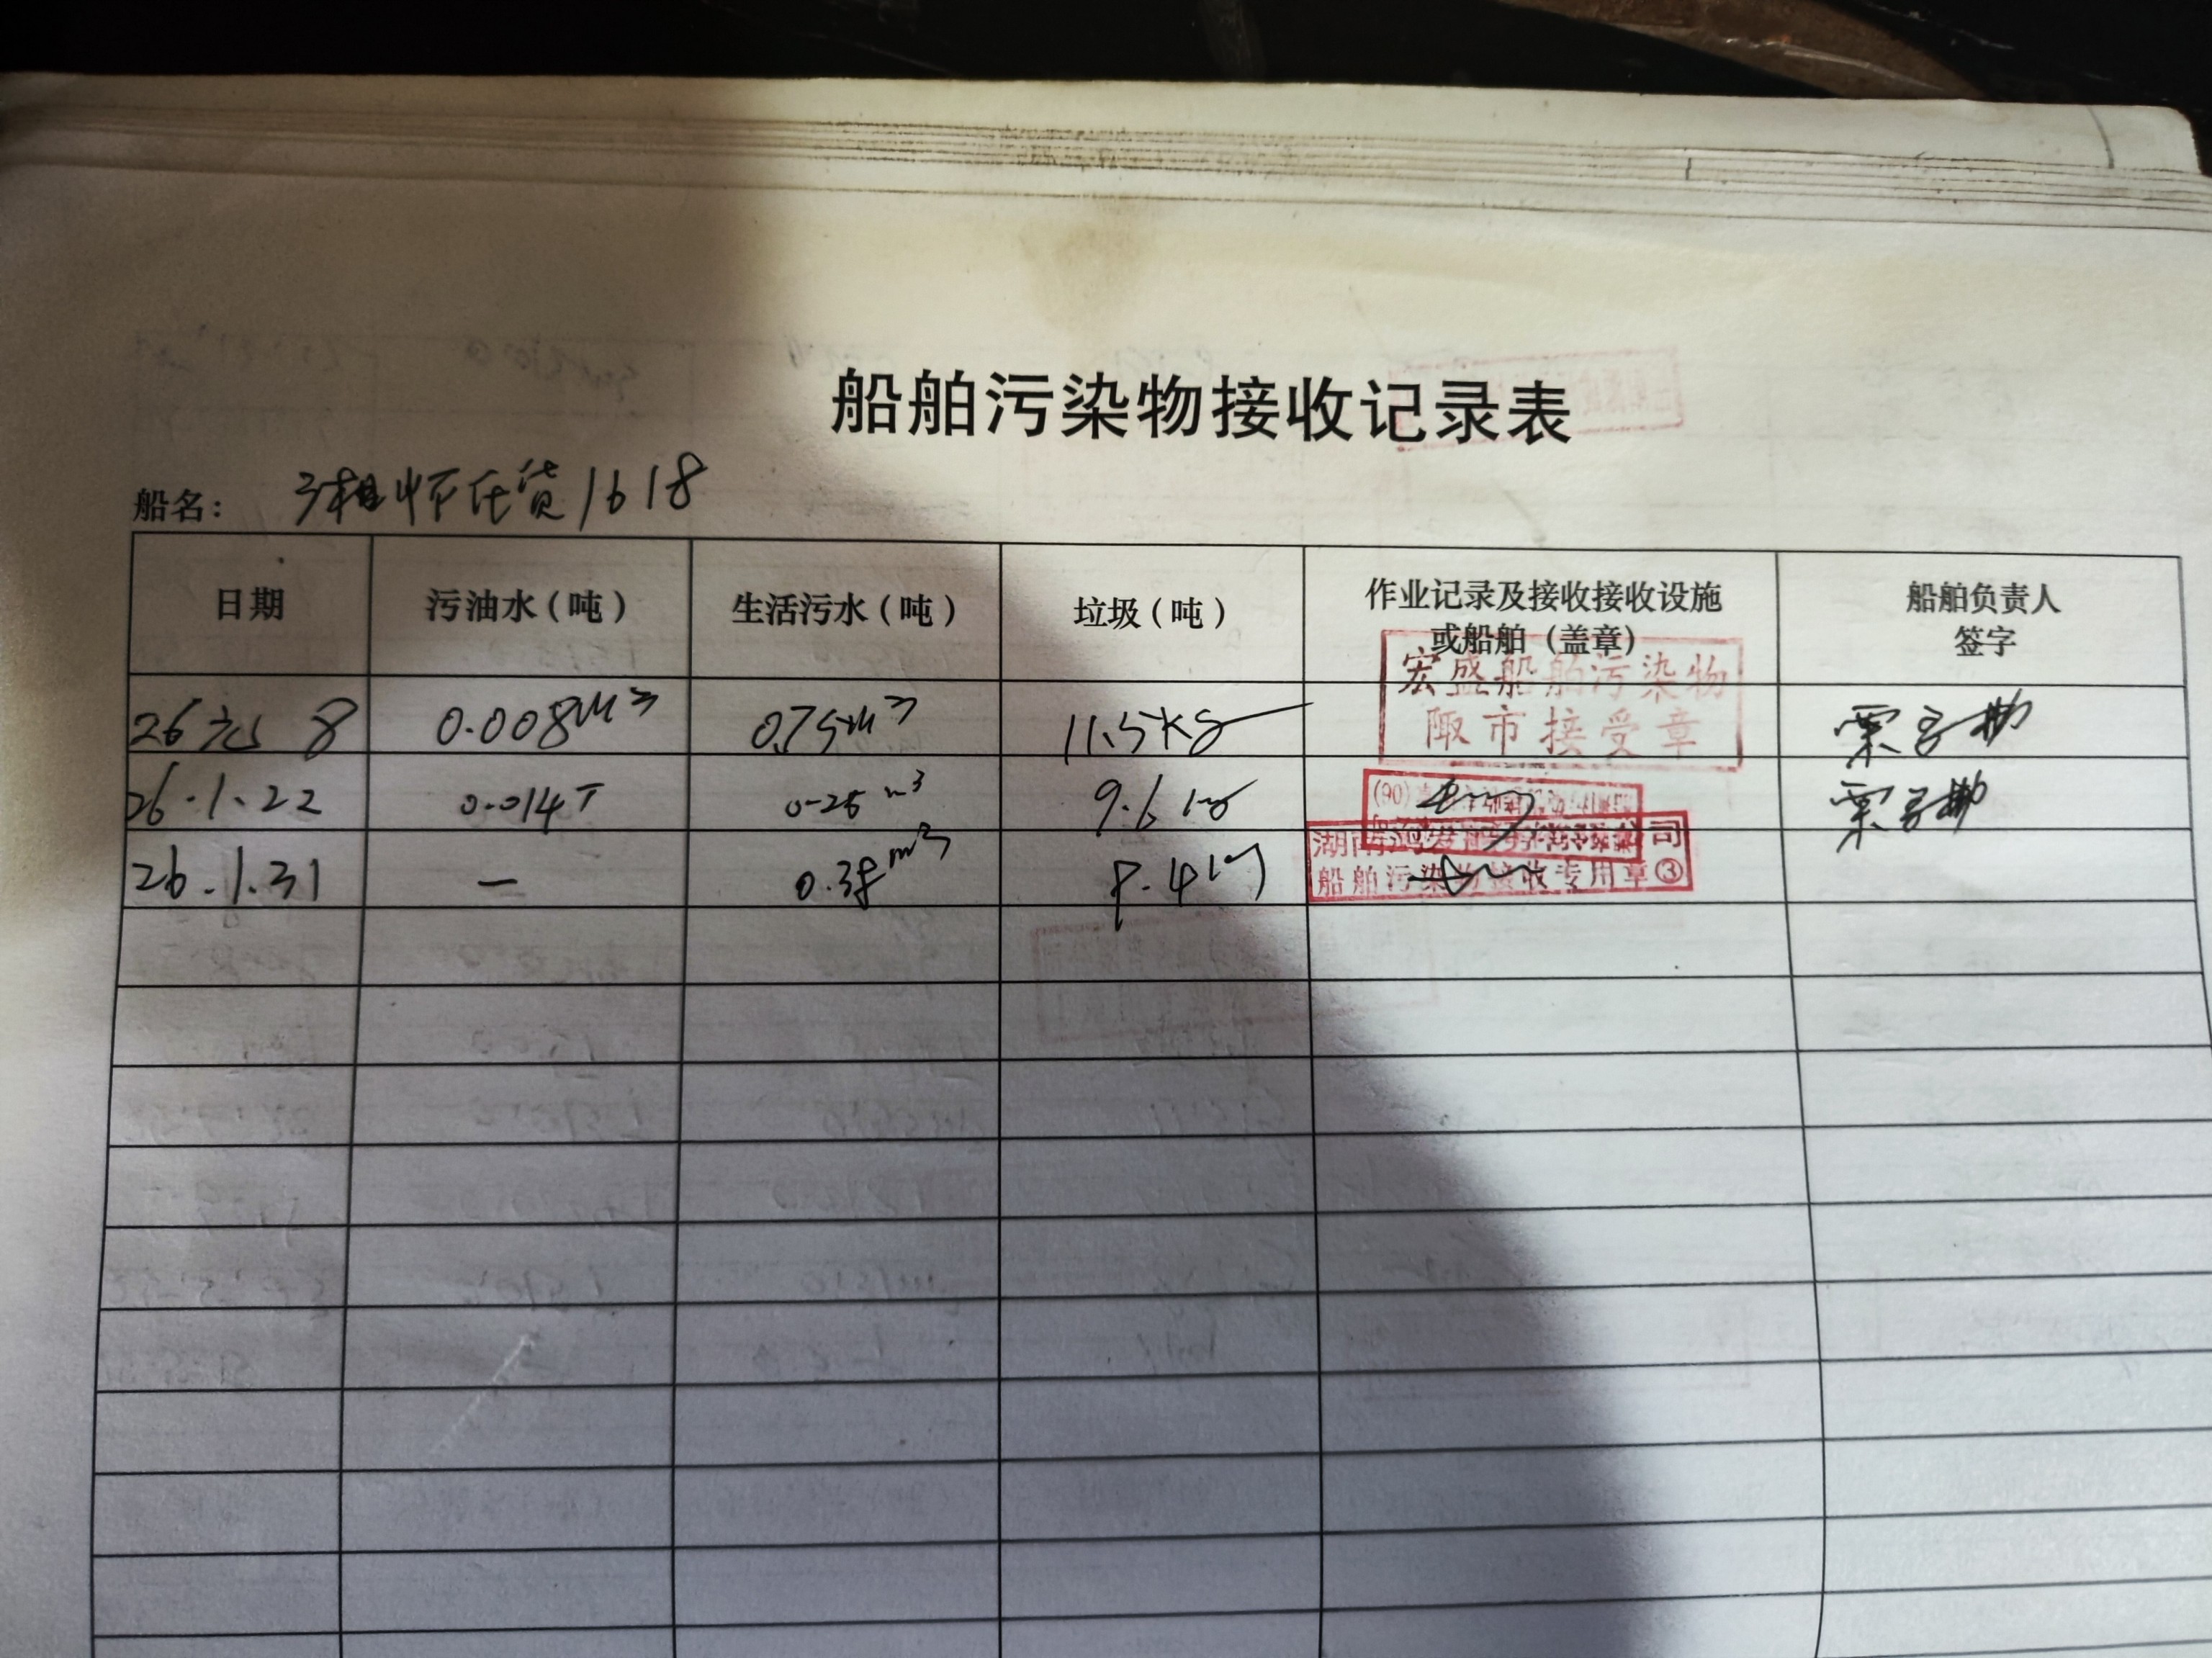 船舶污染物接收记录表
船名： 湘怀化货1618
日期 污油水（吨） 生活污水（吨） 垃圾（吨） 作业记录及接收接收设施或船舶（盖章） 船舶负责人签字
26元 8 0.008M³ 0.75M³ 11.5KG
宏盛船舶污染物
陬市接受章
26.1.22 0.014T 0.25 m³ 9.6 kg
(90)
26.1.31 — 0.38m³ 8.4kg
湖南 公司
船舶污染物接收专用章③